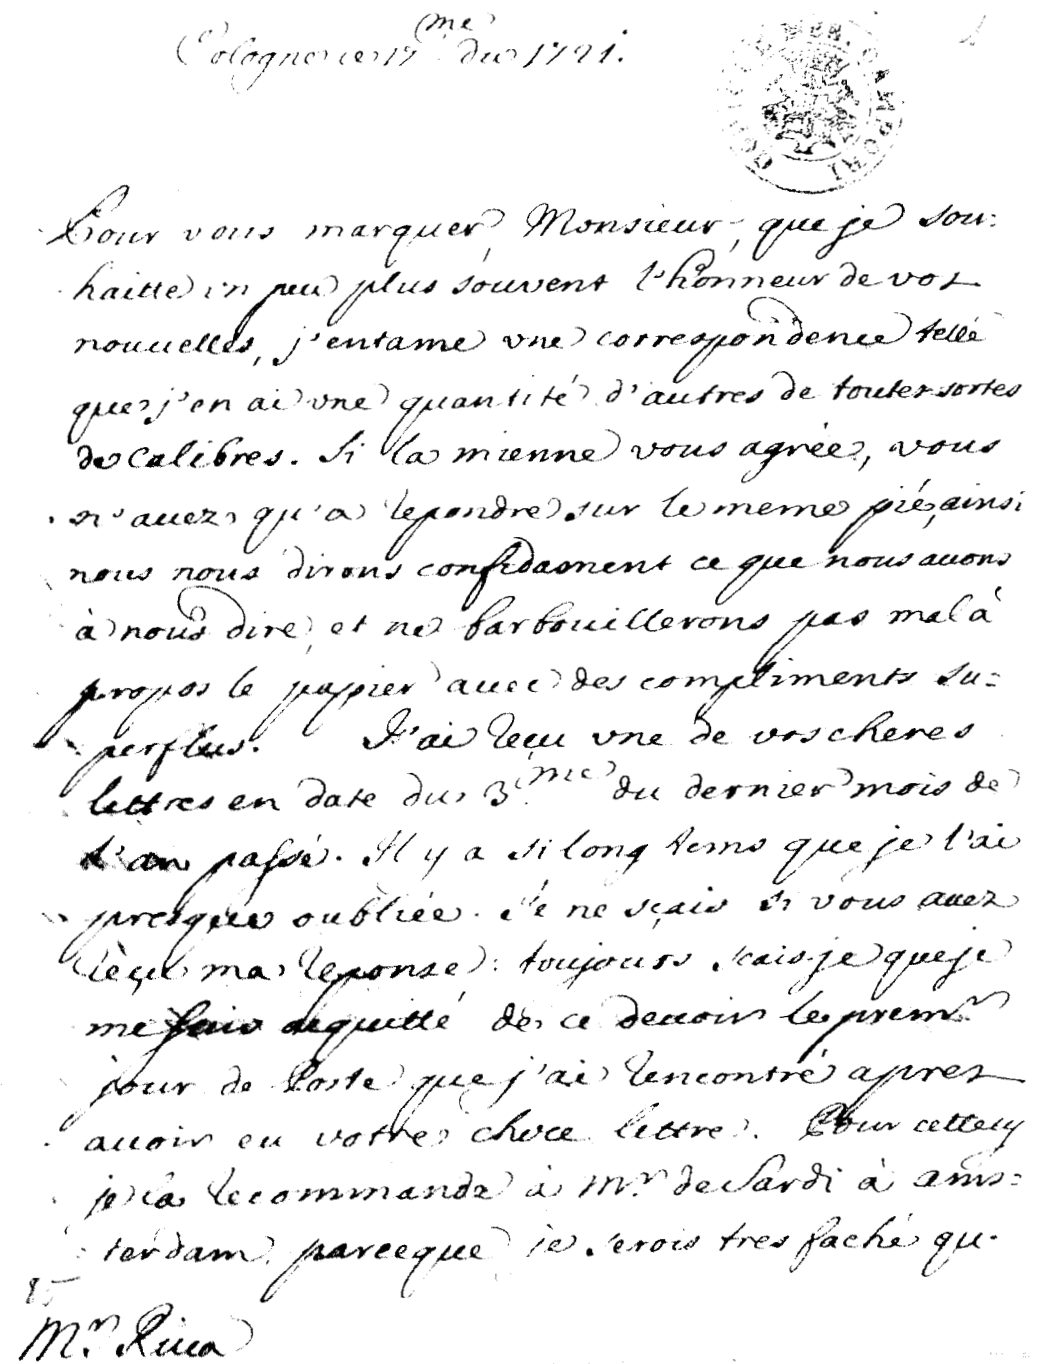 Cologne ce 17me du 1721.
Pour vous marquer, Monsieur, que je sou:
haitte un peu plus souvent l'honneur de vos
nouuelles, j'entame vne correspondence telle
que j'en ai vne quantité d'autres de toutes sortes
de calibres. Si la mienne vous agrée, vous
n'auez qu'a repondre sur le meme pié, ainsi
nous nous dirons confidament ce que nous auons
à nous dire, et ne barbouillerons pas mal à
propos le papier auec des compliments su=
perflus. J'ai reçu vne de vos cheres
lettres en date du 3.me du dernier mois de
l'an passé. Il y a si long tems que je l'ai
presque oubliée. Je ne sçais si vous auez
reçu ma reponse: toujours scais-je que je
me suis acquitté de ce deuoir le premr
jour de Poste que j'ai rencontré aprez
auoir eu votre chere lettre. Pour cettecy
je la recommande à Mr. de Sardi à Ams=
terdam, parceque je serois tres faché qu.
85
Mr. Riua